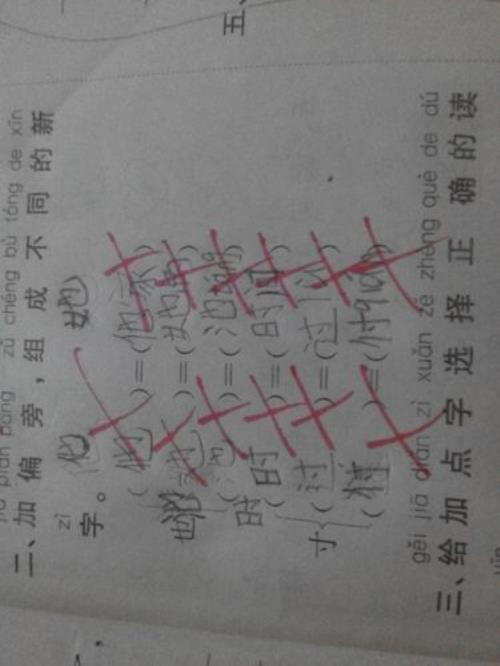 piān páng zǔ chéng bù tóng de xīn
二、加偏旁，组成不同的新
zì
字。
他 她
(他)=(他家)
(她)=(她的)
(池)=(池
时(时)=(时间)
寸(过)=(过人)
(村)=(付
gěi jiā diǎn zì xuǎn zé zhèng què de dú
三、给加点字选择正确的读
五、